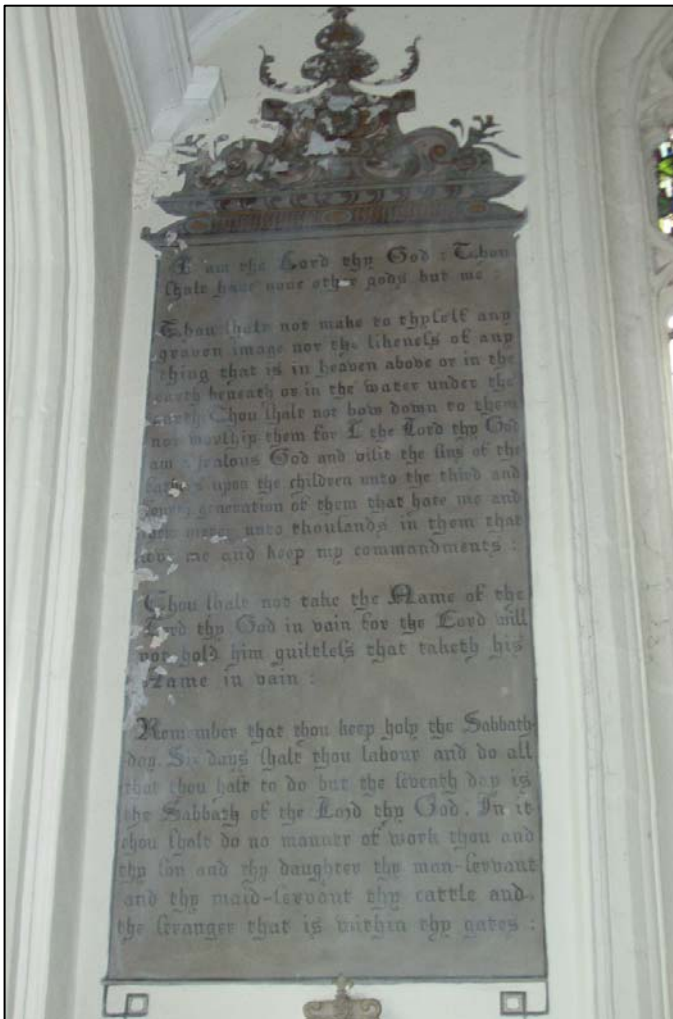 I am the Lord thy God : Thou
shalt have none other gods but me :
Thou shalt not make to thyself any
graven image nor the likeness of any
thing that is in heaven above or in the
earth beneath or in the water under the
earth. Thou shalt not bow down to them
nor worship them for I the Lord thy God
am a jealous God and visit the sins of the
fathers upon the children unto the third and
fourth generation of them that hate me and
shew mercy unto thousands in them that
love me and keep my commandments :
Thou shalt not take the Name of the
Lord thy God in vain for the Lord will
not hold him guiltless that taketh his
Name in vain :
Remember that thou keep holy the Sabbath-
day. Six days shalt thou labour and do all
that thou hast to do but the seventh day is
the Sabbath of the Lord thy God. In it
thou shalt do no manner of work thou and
thy son and thy daughter thy man-servant
and thy maid-servant thy cattle and
the stranger that is within thy gates :